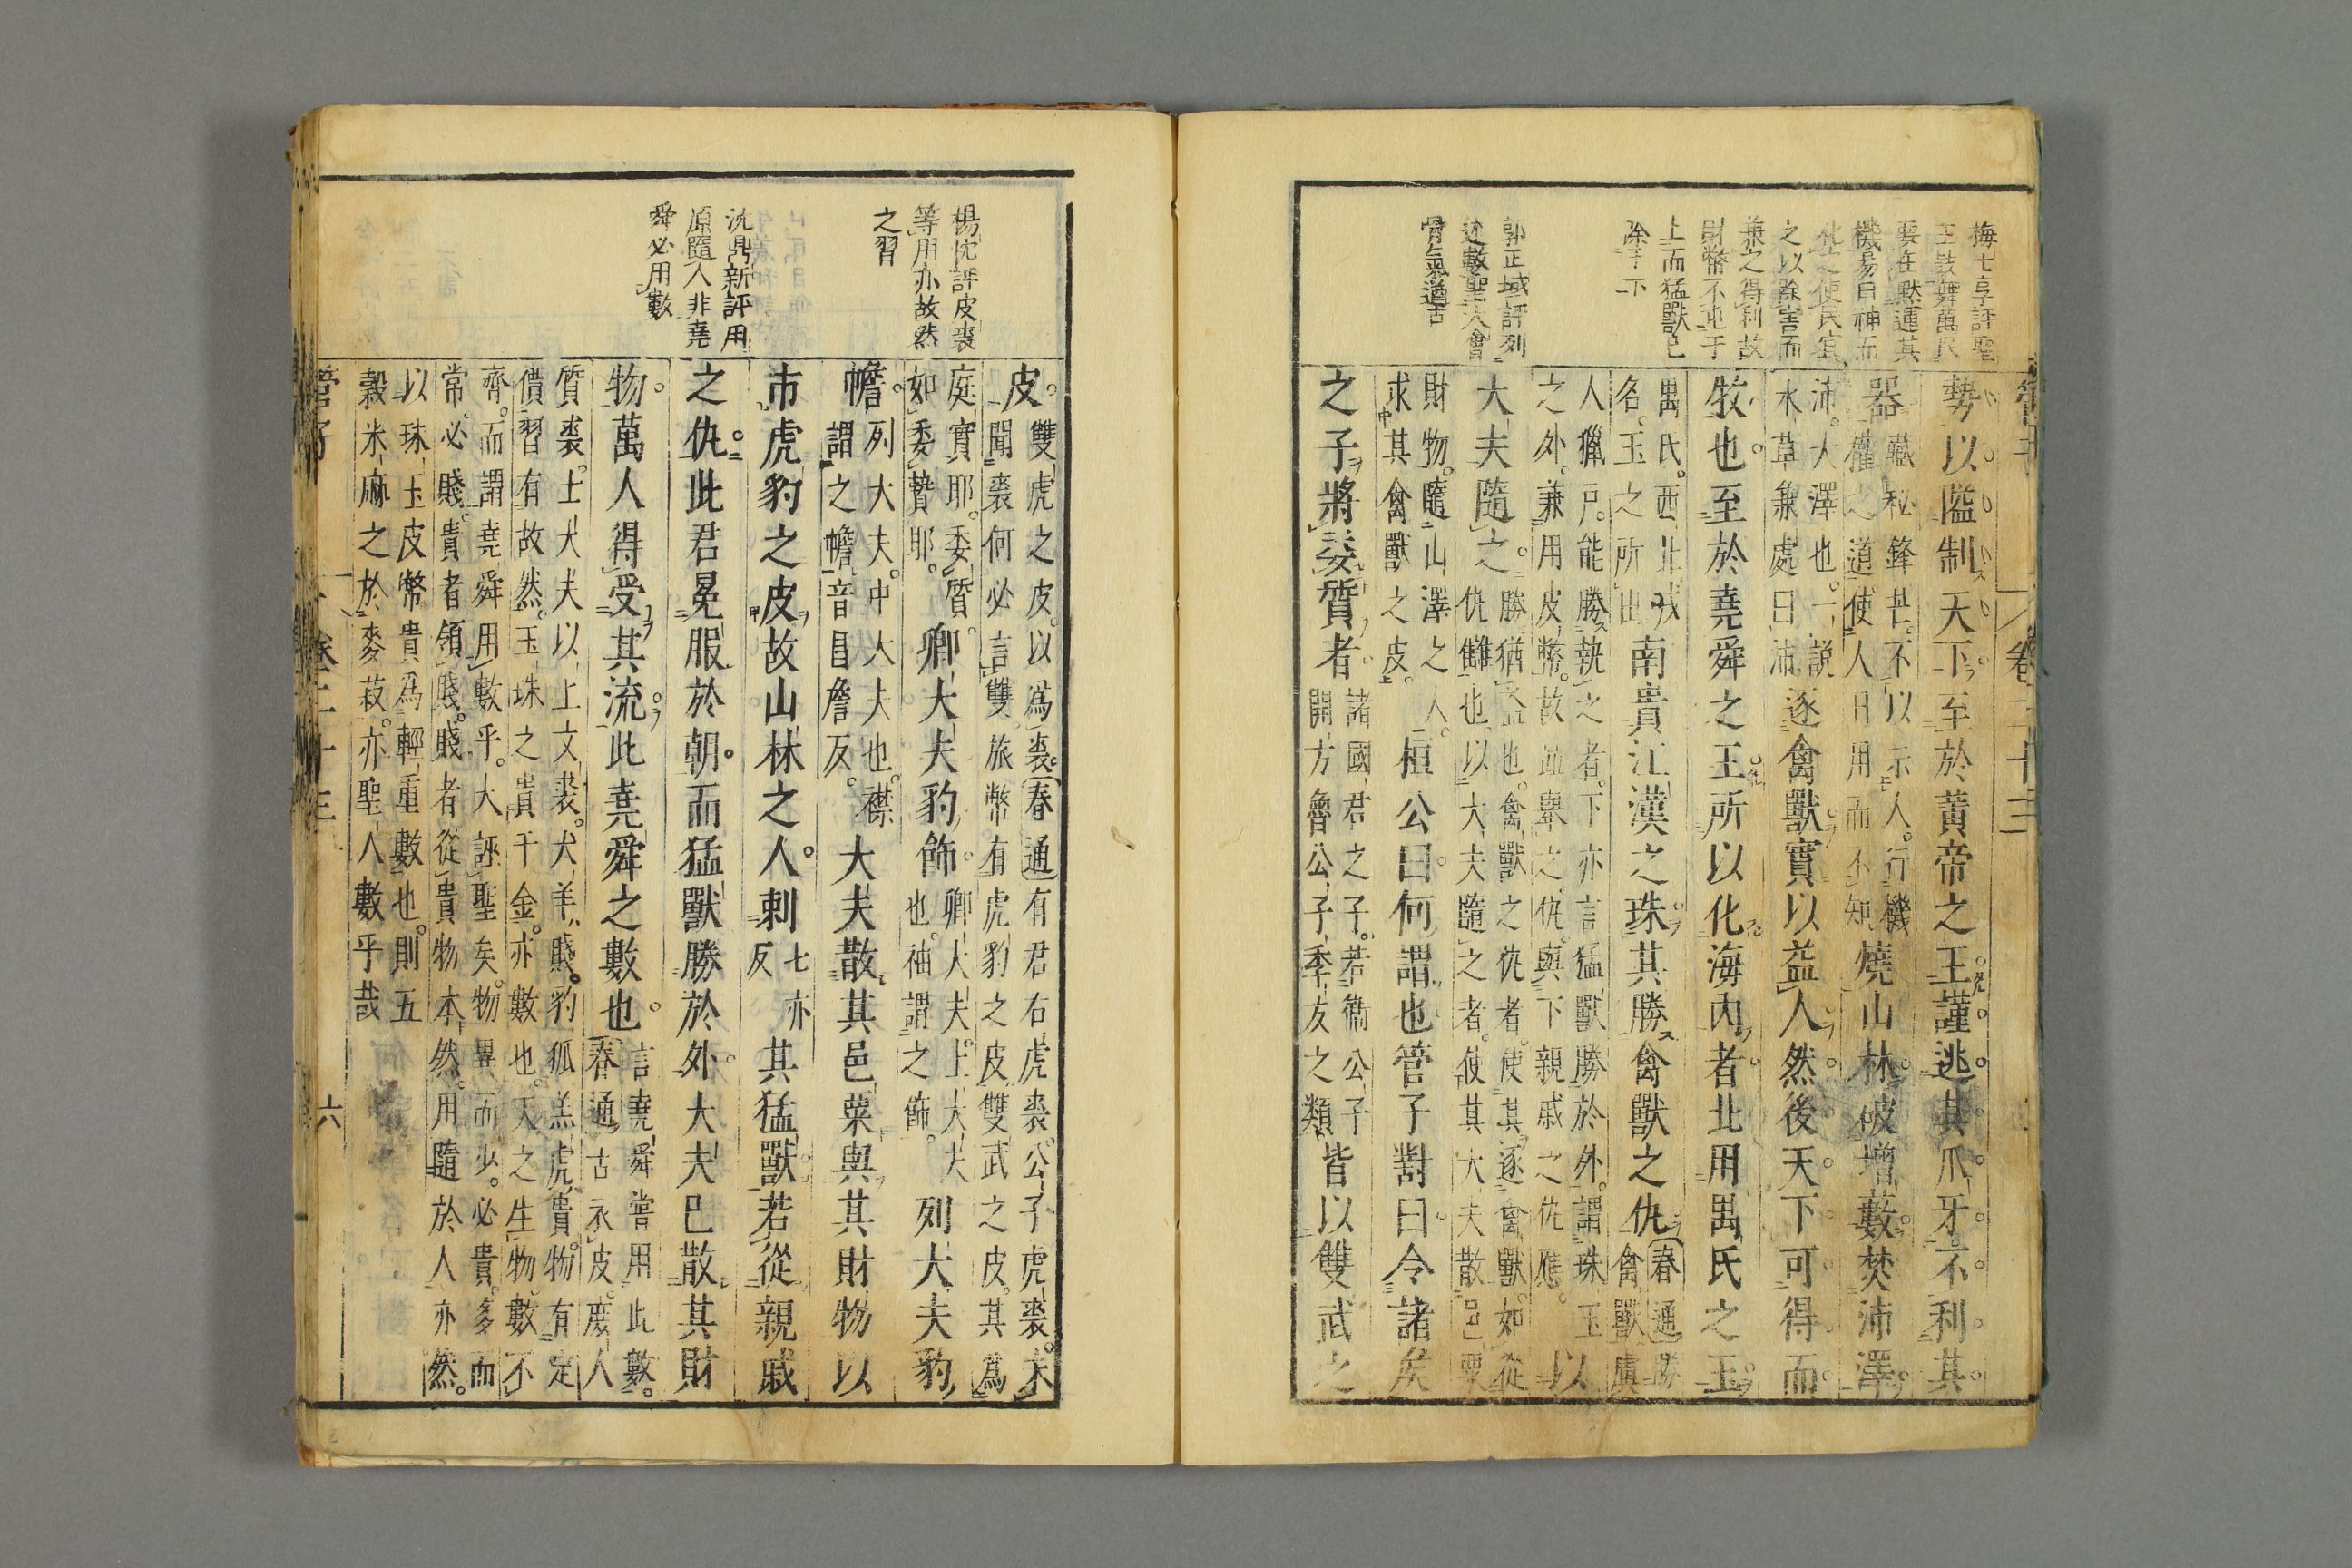 梅士享評聖
王鼓舞萬民
要在默運其
機易曰神而
化之使民宜
之以除害而
兼之得利故
財幣不屯于
上而猛獸已
除于下
郭正域評列
述數聖大會
骨氣遒古
管子
卷二十三
勢以隘制天下至於黃帝之王謹逃其爪牙不利其
器藏秘鋒芒不以示人行機
權之道使人日用而不知燒山林破增藪焚沛澤
沛大澤也一說
水草兼處曰沛逐禽獸實以益人然後天下可得而
牧也至於堯舜之王所以化海內者北用禺氏之玉
禺氏西北戎
名玉之所出南貴江漢之珠其勝禽獸之仇春通勝
禽獸虞
人獵戶能勝執之者下亦言猛獸勝於外謂珠玉
之外兼用皮幣故並舉之仇與下親戚之仇應以
大夫隨之勝猶益也禽獸之仇者使其逐禽獸如從
仇讎也以大夫隨之者使其大夫散邑粟
財物隨山澤之人
求其禽獸之皮桓公曰何謂也管子對曰令諸矦
之子將委質者諸國君之子若衛公子
開方魯公子季友之類皆以雙武之
楊忱評皮裘
等用亦故然
之習
沈鼎新評用
原隨人非堯
舜必用數
皮雙虎之皮以爲裘春通有君右虎裘公子虎裘未
聞裘何必言雙旅幣有虎豹之皮雙武之皮其爲
庭實耶委質
如委贄耶卿大夫豹飾卿大夫上大夫
也袖謂之飾列大夫豹
幨列大夫中大夫也襟
謂之幨幨音昌詹反大夫散其邑粟與其財物以
市虎豹之皮故山林之人刺七亦
反其猛獸若從親戚
之仇此君冕服於朝而猛獸勝於外大夫已散其財
物萬人得受其流此堯舜之數也言堯舜嘗用此數
春通古衣皮庶人
質裘士大夫以上文裘犬羊賤豹狐羔虎貴物有定
價習有故然玉珠之貴千金亦數也天之生物數不
齊而謂堯舜用數乎大誣聖矣物異而少必貴多而
常必賤貴者領賤賤者從貴物本然用隨於人亦然
以珠玉皮幣貴爲輕重數也則五
穀米麻之於麥菽亦聖人數乎哉
管子
卷二十三
六